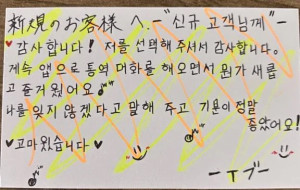 新規のお客様へ.-"신규 고객님께"-
♥감사합니다! 저를 선택해 주셔서 감사합니다.
계속 앱으로 통역 대화를 해오면서 뭔가 새롭
고 즐거웠어요♪
나를 잊지 않겠다고 말해 주고 기분이 정말
좋았어요!
♥고마웠습니다♥